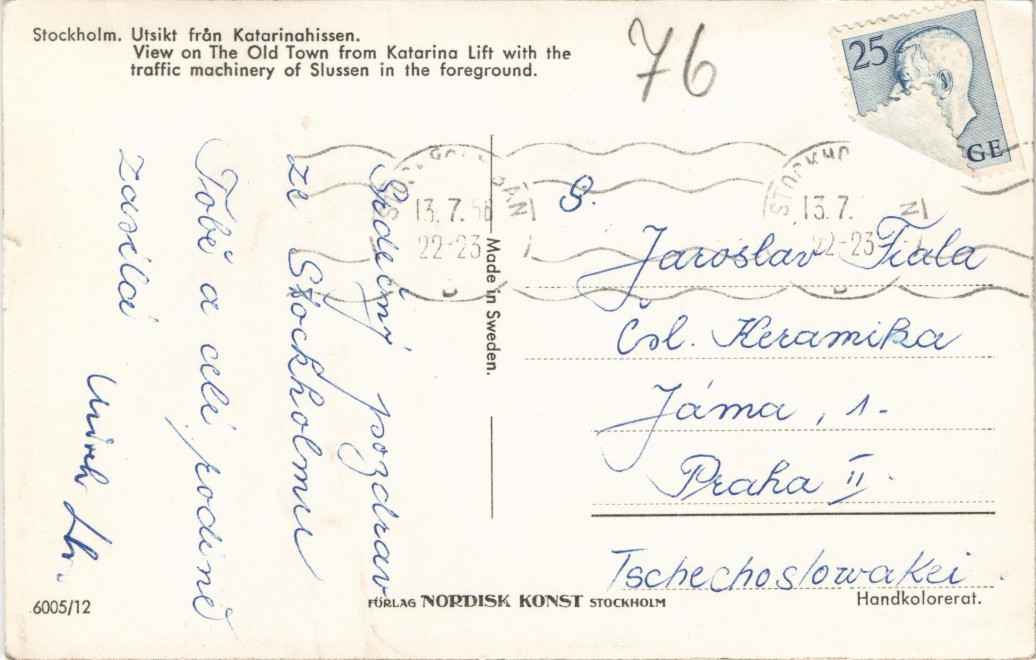 Stockholm. Utsikt från Katarinahissen.
View on The Old Town from Katarina Lift with the
traffic machinery of Slussen in the foreground.
76
25
GE
13.7.
22-23
STOCKHO
13.7.
22-23
Srdečný pozdrav
ze Stockholmu
Tobě a celé rodině
zasílá
Made in Sweden.
P.
Jaroslav Fiala
Čsl. Keramika
Jáma, 1-
Praha II.
Tschechoslowakei.
6005/12
FÖRLAG NORDISK KONST STOCKHOLM
Handkolorerat.